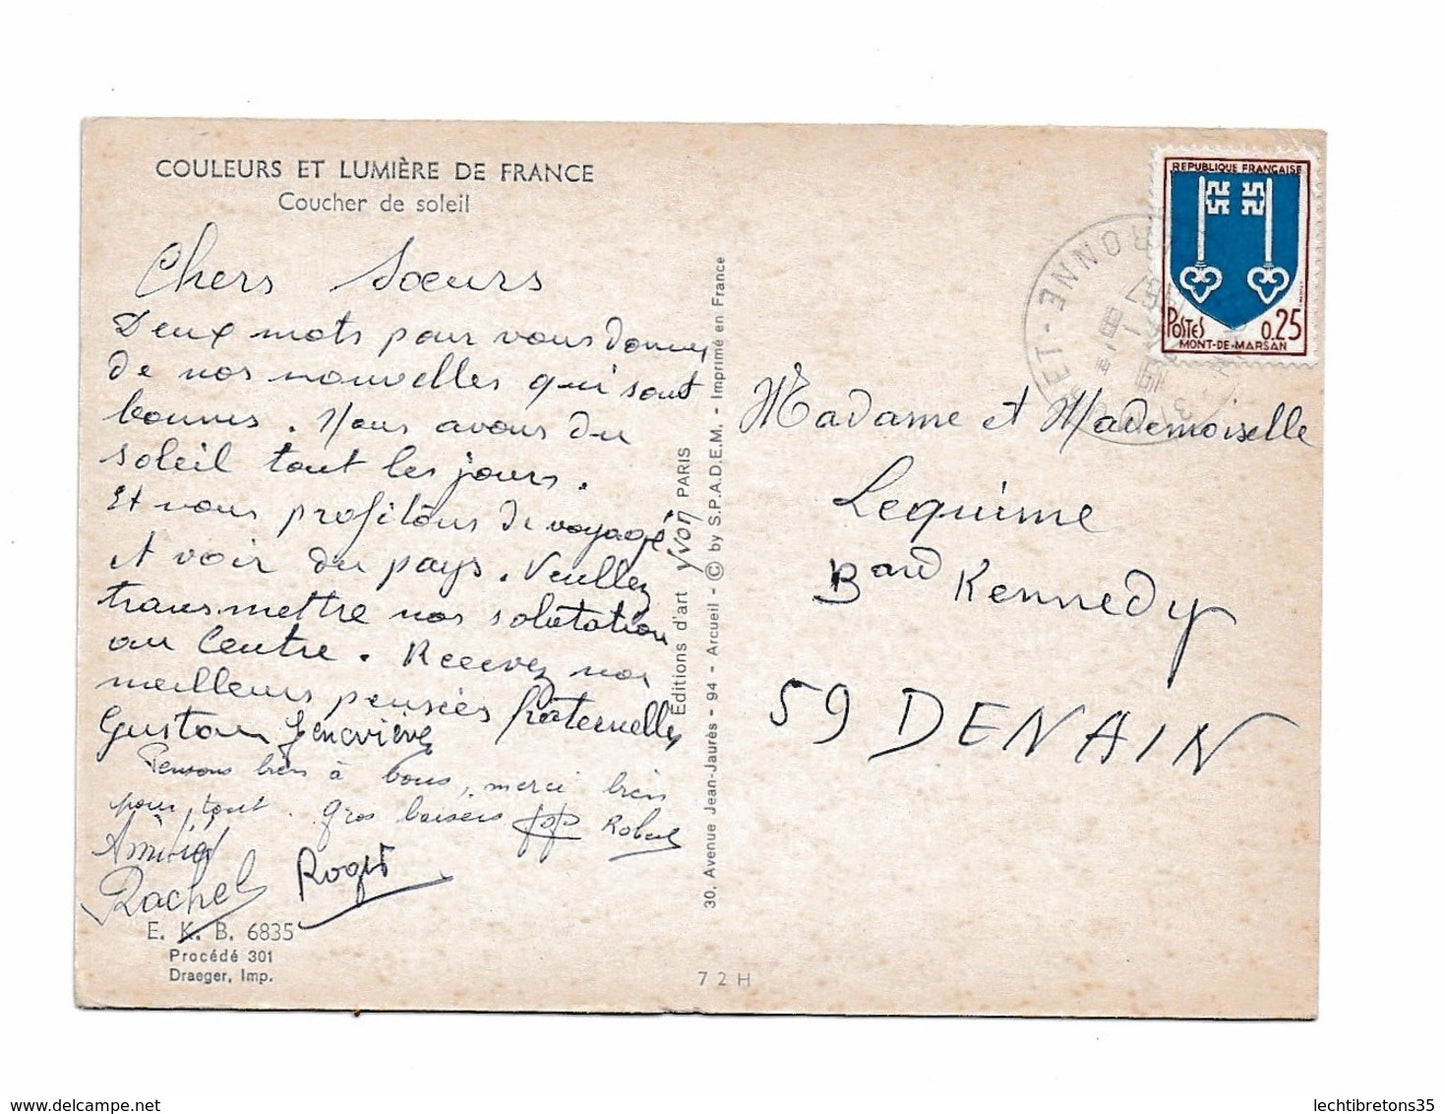 COULEURS ET LUMIÈRE DE FRANCE
Coucher de soleil
Chers Sœurs
Deux mots pour vous donner
de nos nouvelles qui sont
bonnes. Nous avons du
soleil tout les jours.
Et nous profitons de voyagé
et voir du pays. Veuillez
transmettre nos salutation
au Centre. Recevez nos
meilleurs pensées fraternelles
Gustave Geneviève
Pensons bien à vous, merci bien
pour tout. gros baisers Robert
Amitié
Rachel Roger
E. K. B. 6835
Procédé 301
Draeger, Imp.
Éditions d'art yvon PARIS
30, Avenue Jean-Jaurès - 94 - Arcueil - © by S.P.A.D.E.M. - Imprimé en France
72H
REPUBLIQUE FRANÇAISE
POSTES 0.25
MONT-DE-MARSAN
ET-
RONNE
Madame et Mademoiselle
Lequime
Bard Kennedy
59 DENAIN
delcampe.net
lechtibretons35